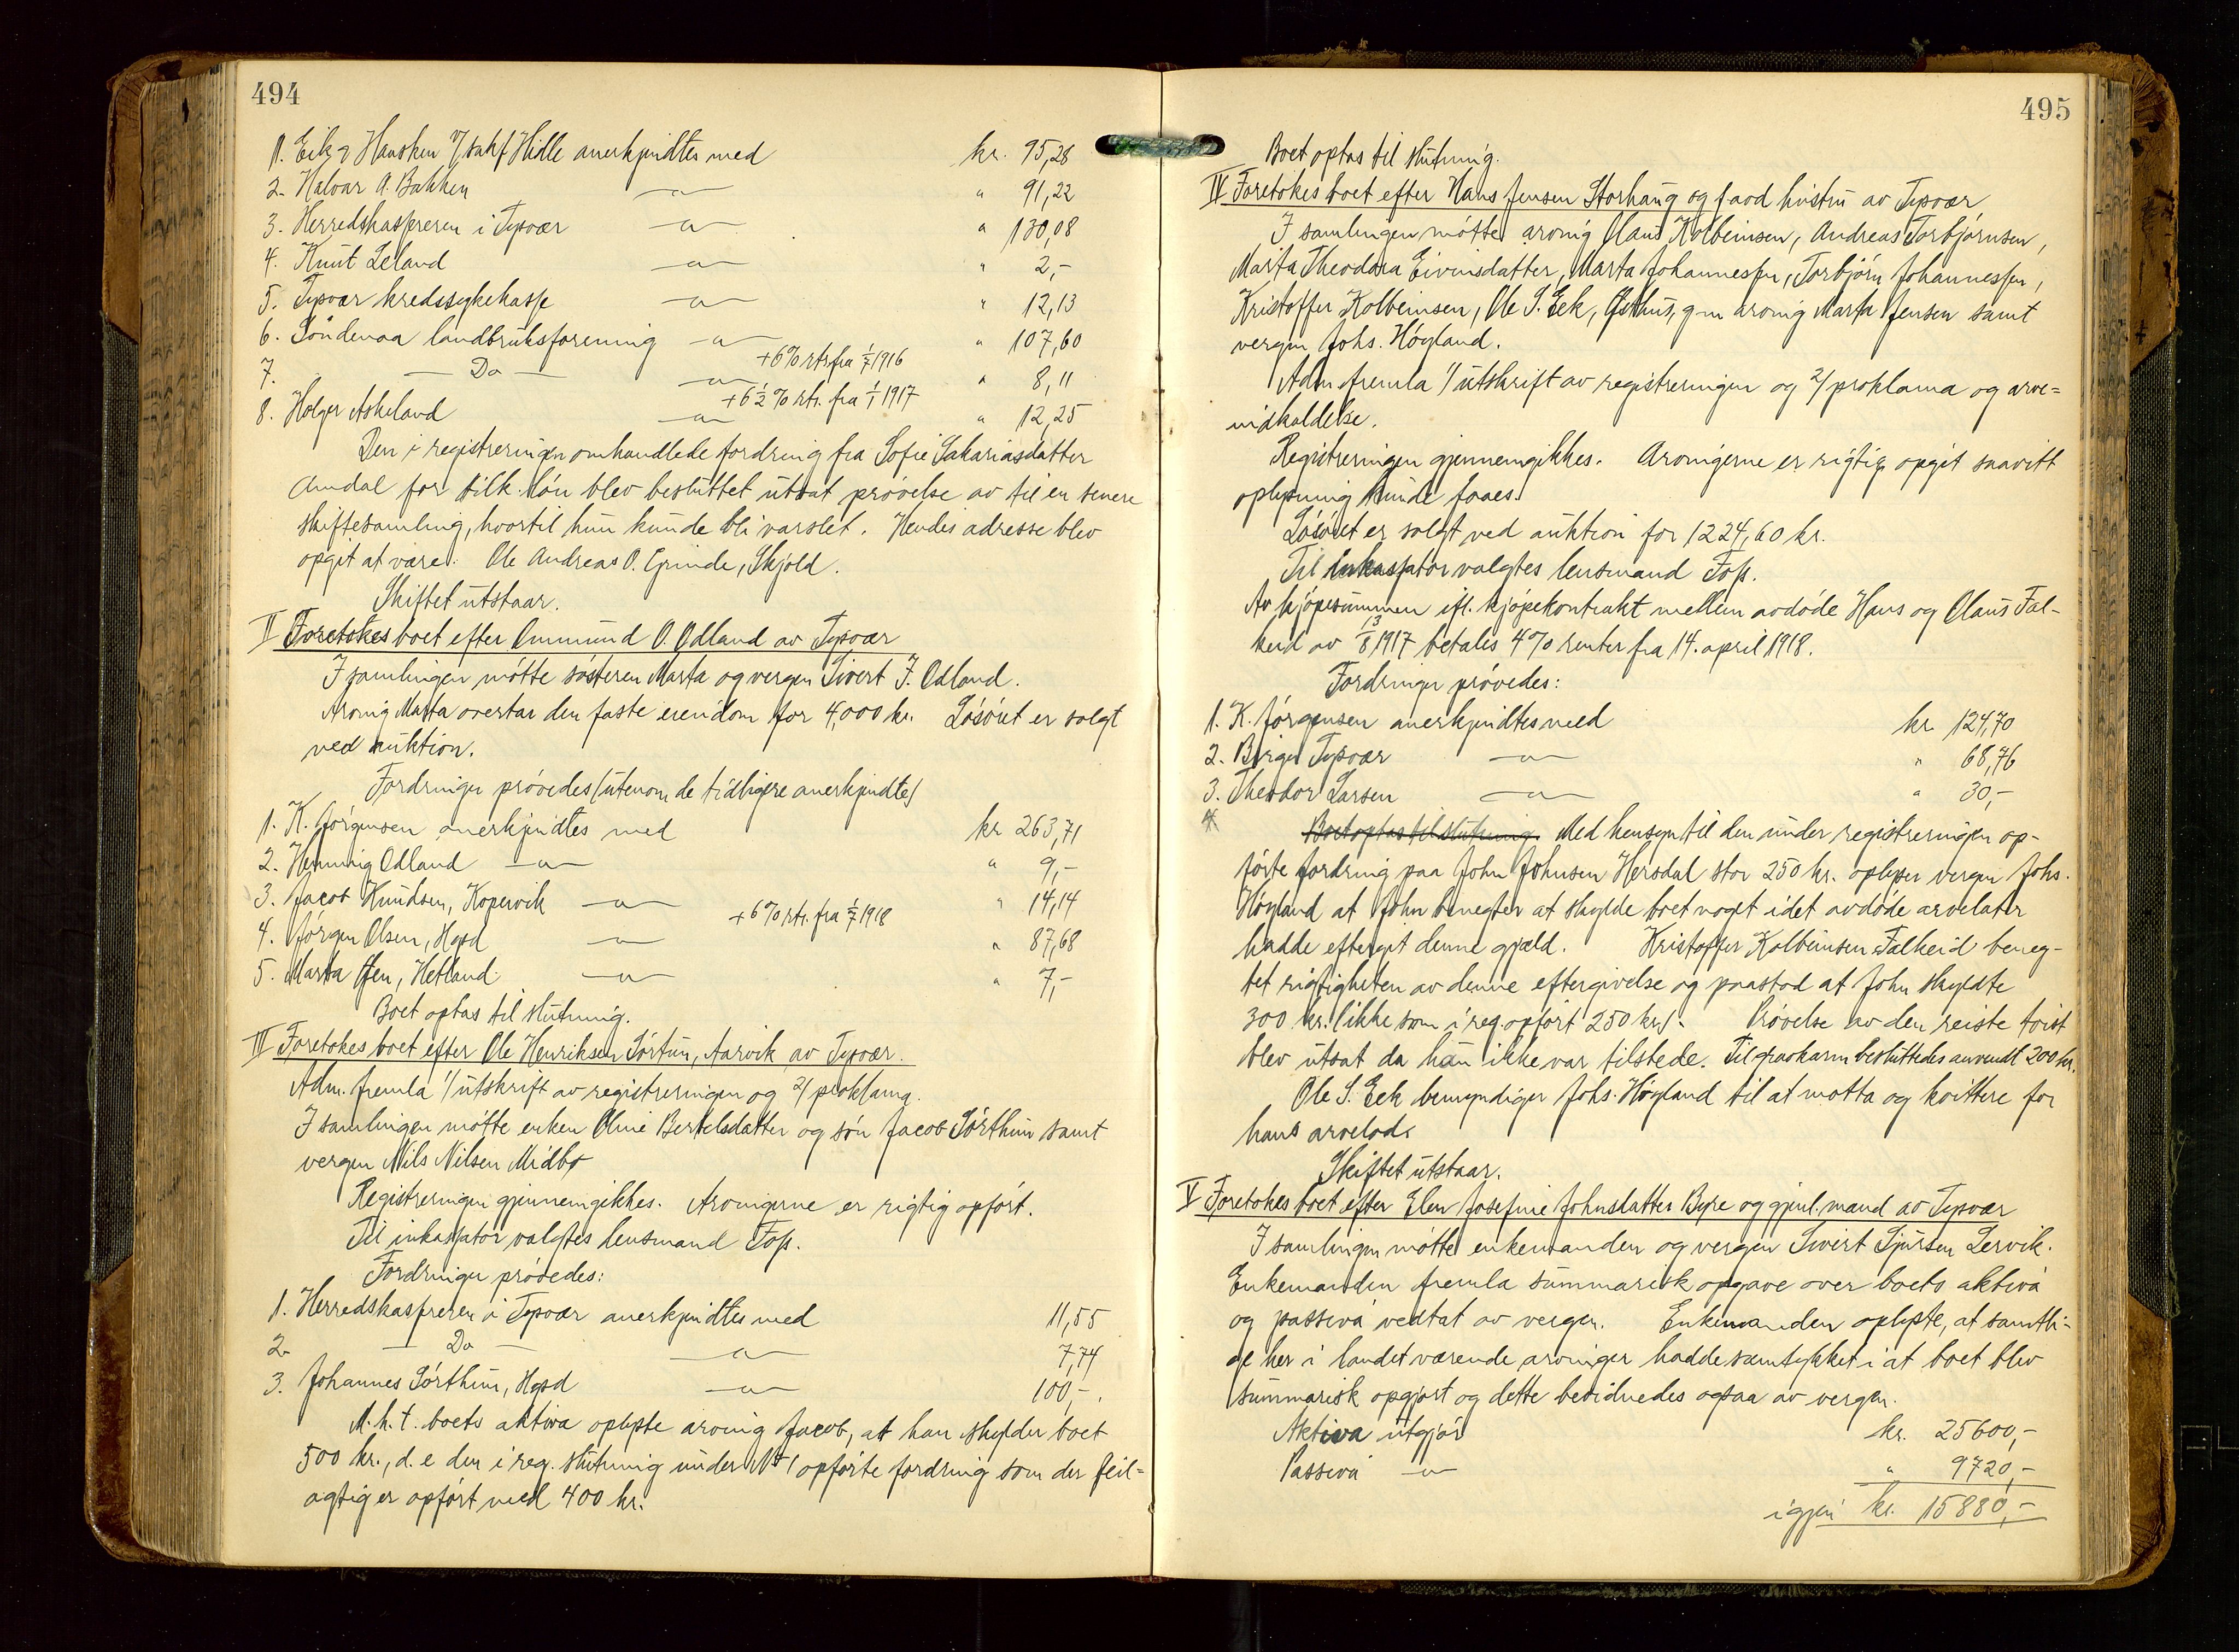 494
1. Eik & Hausken v/ sakf Hille anerkjendtes med kr. 95,28
2. Halvar A. Bakken —"— " 91,22
3. Herredskasserern i Tysvær —"— " 130,08
4. Knut Leland —"— " 2,-
5. Tysvær kredssykekasse —"— " 12,13
6. Söndenaa landbruksforening —"— " 107,60
+6% rtr. fra 1/7 1916
7. — Do — —"— " 8,11
+6½% rtr. fra 1/1 1917
8. Holger Askeland —"— " 12,25
Den i registreringen omhandlede fordring fra Sofie Sakariasdatter
Amdal for tilk. lön blev besluttet utsat prövelse av til en senere
skiftesamling, hvortil hun kunde bli varslet. Hendes adresse blev
opgit at være: Ole Andreas O. Grinde, Skjold.
Skiftet utstaar.
II Foretokes boet efter Ommund O. Odland av Tysvær
I samlingen mötte sösteren Marta og vergen Sivert J. Odland.
Arving Marta overtar den faste eiendom for 4,000 kr. Lösöret er solgt
ved auktion.
Fordringer prövedes (utenom de tidligere anerkjendte)
1. K. Jörgensen anerkjendtes med kr 263,71
2. Henning Odland —"— " 9,-
3. Jacob Knudsen, Kopervik —"— " 14,14
+6% rtr. fra 1/7 1918
4. Jörgen Olsen, Hgsd —"— " 87,68
5. Marta Hetland —"— " 7,-
Boet optas til slutning.
III Foretokes boet efter Ole Henriksen Sörtun, Aarvik av Tysvær.
Adm. fremla 1/ utskrift av registreringen og 2/ proklama.
I samlingen mötte enken Oline Bertelsdatter og sön Jacob Sörthun samt
vergen Nils Nilsen Midbø
Registreringen gjennemgikkes. Arvingerne er rigtig opfört.
Til inkassator valgtes lensmand Foss.
Fordringer prövedes:
1. Herredskasserern i Tysvær anerkjendtes med 11,55
2. — Do — —"— 7,74
3. Johannes Sörthun, Hgsd —"— 100,-.
M.h.t. boets aktiva oplyste arving Jacob, at han skylder boet
500 kr., d.e. den i reg. slutning under № 1 opförte fordring som der feil=
agtig er opfört med 400 kr.
495
Boet optas til slutning.
IV Foretokes boet efter Hans Jensen Storhaug og favd hustru av Tysvær
I samlingen mötte arving Olaus Kolbeinsen, Andreas Torbjörnsen,
Marta Theodora Eivinsdatter, Marta Johannessen, Torbjörn Johannessen,
Kristoffer Kolbeinsen, Ole S. Eek, Østhus, gm arving Marta Jensen samt
vergen Johs. Höyland.
Adm fremla 1/ utskrift av registreringen og 2/ proklama og arve=
indkaldelse.
Registreringen gjennemgikkes. Arvingerne er rigtig opgit saavitt
oplysning kunde faaes.
Lösöret er solgt ved auktion for 1224,60 kr.
Til inkassator valgtes lensmand Foss.
Av kjöpesummen ifl. kjöpekontrakt mellem avdöde Hans og Olaus Fal-
keid av 13/8 1917 betales 4% renter fra 14. april 1918.
Fordringer prövedes:
1. K. Jörgensen anerkjendtes med kr 124,70
2. Birger Tysvær —"— " 68,76
3. Theodor Larsen —"— " 30,-
4. Boet optas til slutning. Med hensyn til den under registreringen op-
förte fordring paa John Johnsen Hersdal stor 250 kr. oplyser vergen Johs.
Höyland at John benegter at skylde boet noget idet avdöde arvelater
hadde eftergit denne gjæld. Kristoffer Kolbeinsen Falkeid beneg-
tet rigtigheten av denne eftergivelse og paastod at John skyldte
300 kr. (ikke som i reg. opfört 250 kr). Prövelse av den reiste tvist
blev utsat da han ikke var tilstede. Til gravkarm besluttedes anvendt 200 kr.
Ole S. Eek bemyndiger Johs. Höyland til at motta og kvittere for
hans arvelod.
Skiftet utstaar.
V Foretokes boet efter Elen Josefine Johnsdatter Byre og gjenl. mand av Tysvær
I samlingen mötte enkemanden og vergen Sivert Sjursen Lervik.
Enkemanden fremla summarisk opgave over boets aktiva
og passiva vedtat av vergen. Enkemanden oplyste, at samtli-
ge her i landet værende arvinger hadde samtykket i at boet blev
summarisk opgjort og dette bevidnedes ogsaa av vergen.
Aktiva utgjör kr. 25600,-
Passiva —"— " 9720,-
igjen kr. 15880,-